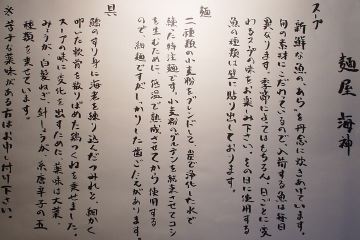 麺屋 海神
スープ
新鮮な魚のあらを丹念に炊きあげています。
旬の素材にこだわっているので、入荷する魚は毎日
異なります。季節によってはもちろん、日ごとに変
わるスープの味をお楽しみ下さい。その日に使用する
魚の種類は壁に貼り出しております。
麺
二種類の小麦粉をブレンドして、炭で浄化した水で
練った特注麺です。小麦粉のグルテンを結束させてコシ
を生むために、低温で熟成させてから使用する
ので、細麺ですがしっかりした歯ごたえがあります。
具
鱈のすり身に海老を練り込んだつみれと、細かく
叩いた軟骨を散りばめた鶏つくねを乗せました。
スープの味に変化を出すための薬味は大葉、
みょうが、白髪ねぎ、針しょうが、糸唐辛子の五
種類を乗せています。
※苦手な薬味のある方はお申し付け下さい。